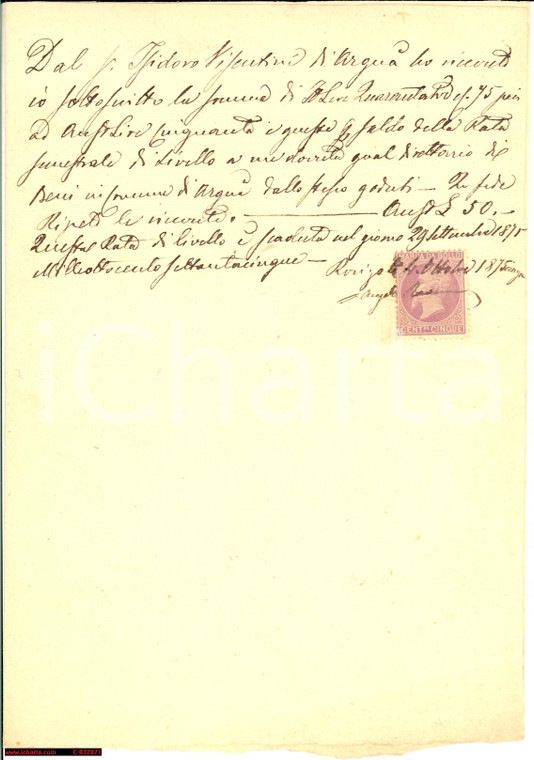 Dal S. Isidoro Visentini di Arquà ho ricevuto
io sottoscritto la somma di It Lire Quarantatre c. 75 pari
ad Aust Lire cinquanta e queste a saldo della Rata
semestrale di Livello a me dovuta qual direttario di
Beni in Comune di Arquà dallo stesso goduti — In fede
Ripeto la ricevuta. — Aust £ 50.—
Questa Rata di livello è scaduta nel giorno 29 Settembre 1875
Milleottocento settantacinque —
Rovigo li 4 Ottobre 1875
Angelo
MARCA DA BOLLO
CENT.MI CINQUE
iCharta
www.icharta.com